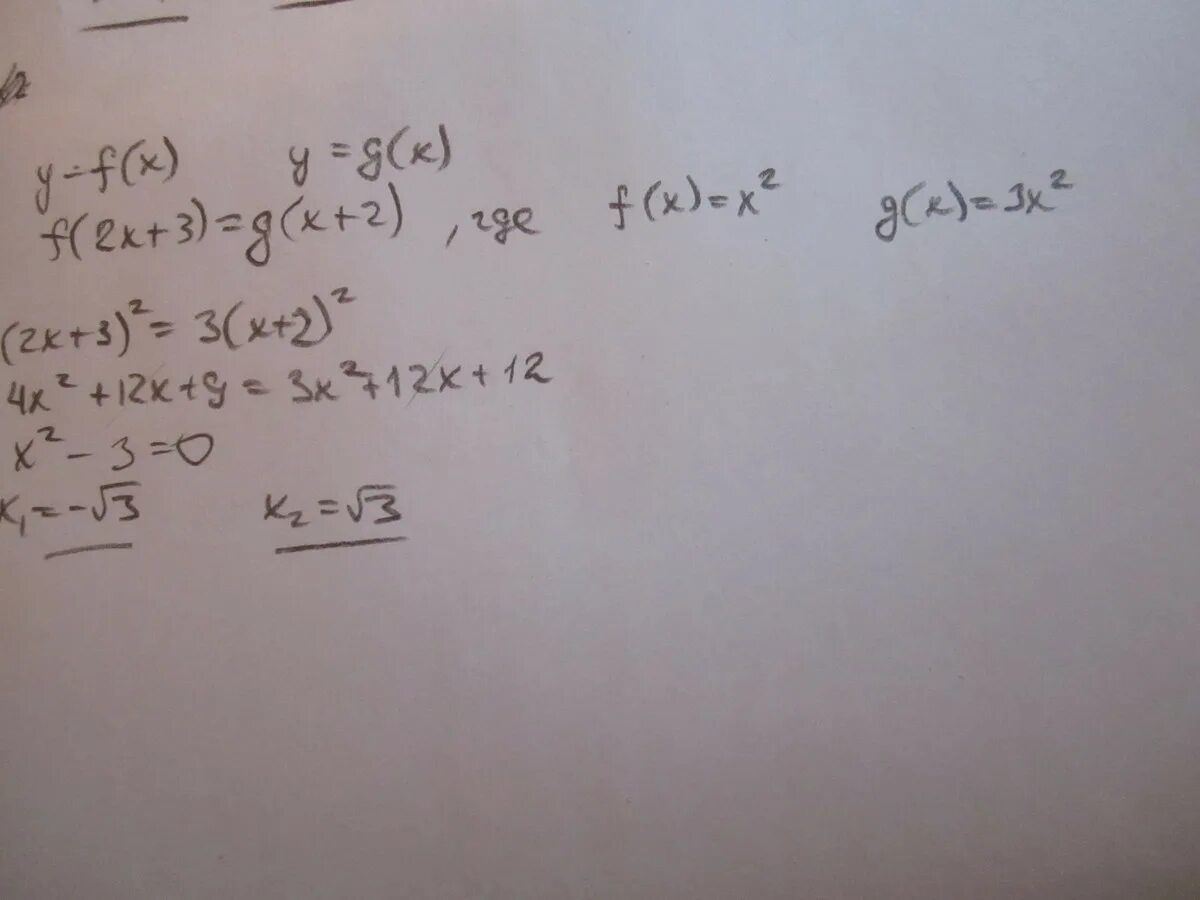 y = f(x) y = g(x)
f(2x+3) = g(x+2) , где f(x) = x² g(x) = 3x²
(2x+3)² = 3(x+2)²
4x² + 12x + 9 = 3x² + 12x + 12
x² - 3 = 0
x₁ = -√3 x₂ = √3